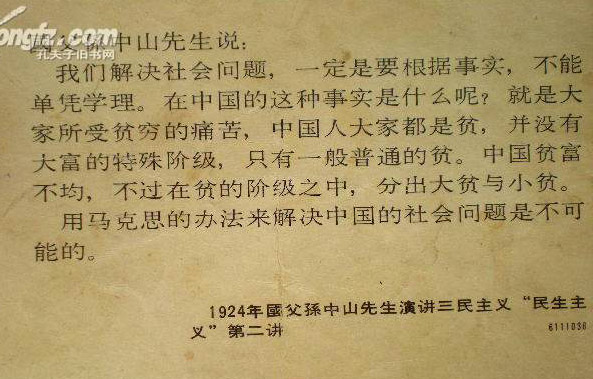 ongfz.com
孔夫子旧书网
國父孫中山先生说：
我们解决社会问题，一定是要根据事实，不能
单凭学理。在中国的这种事实是什么呢？就是大
家所受贫穷的痛苦，中国人大家都是贫，并没有
大富的特殊阶级，只有一般普通的贫。中国贫富
不均，不过在贫的阶级之中，分出大贫与小贫。
用马克思的办法来解决中国的社会问题是不可
能的。
1924年國父孫中山先生演讲三民主义“民生主
义”第二讲
6111036